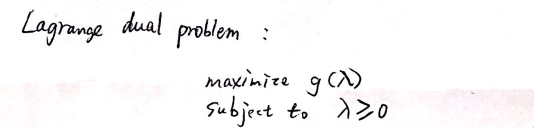 Lagrange dual problem :
maximize g(λ)
subject to λ⩾0